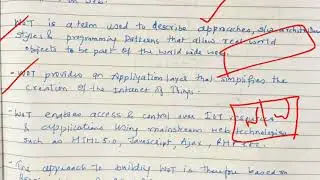 WoT is a term used to describe approaches, s/w architectural
styles & programming patterns that allow real world
objects to be part of the world wide web.
- WoT provides an Application Layer that simplifies the
creation of the Internet of Things.
- WoT enables access & control over IoT resources
& applications using mainstream web technologies
such as HTML 5.0, Javascript, Ajax, PHP etc.
- The approach to building WoT is therefore based on